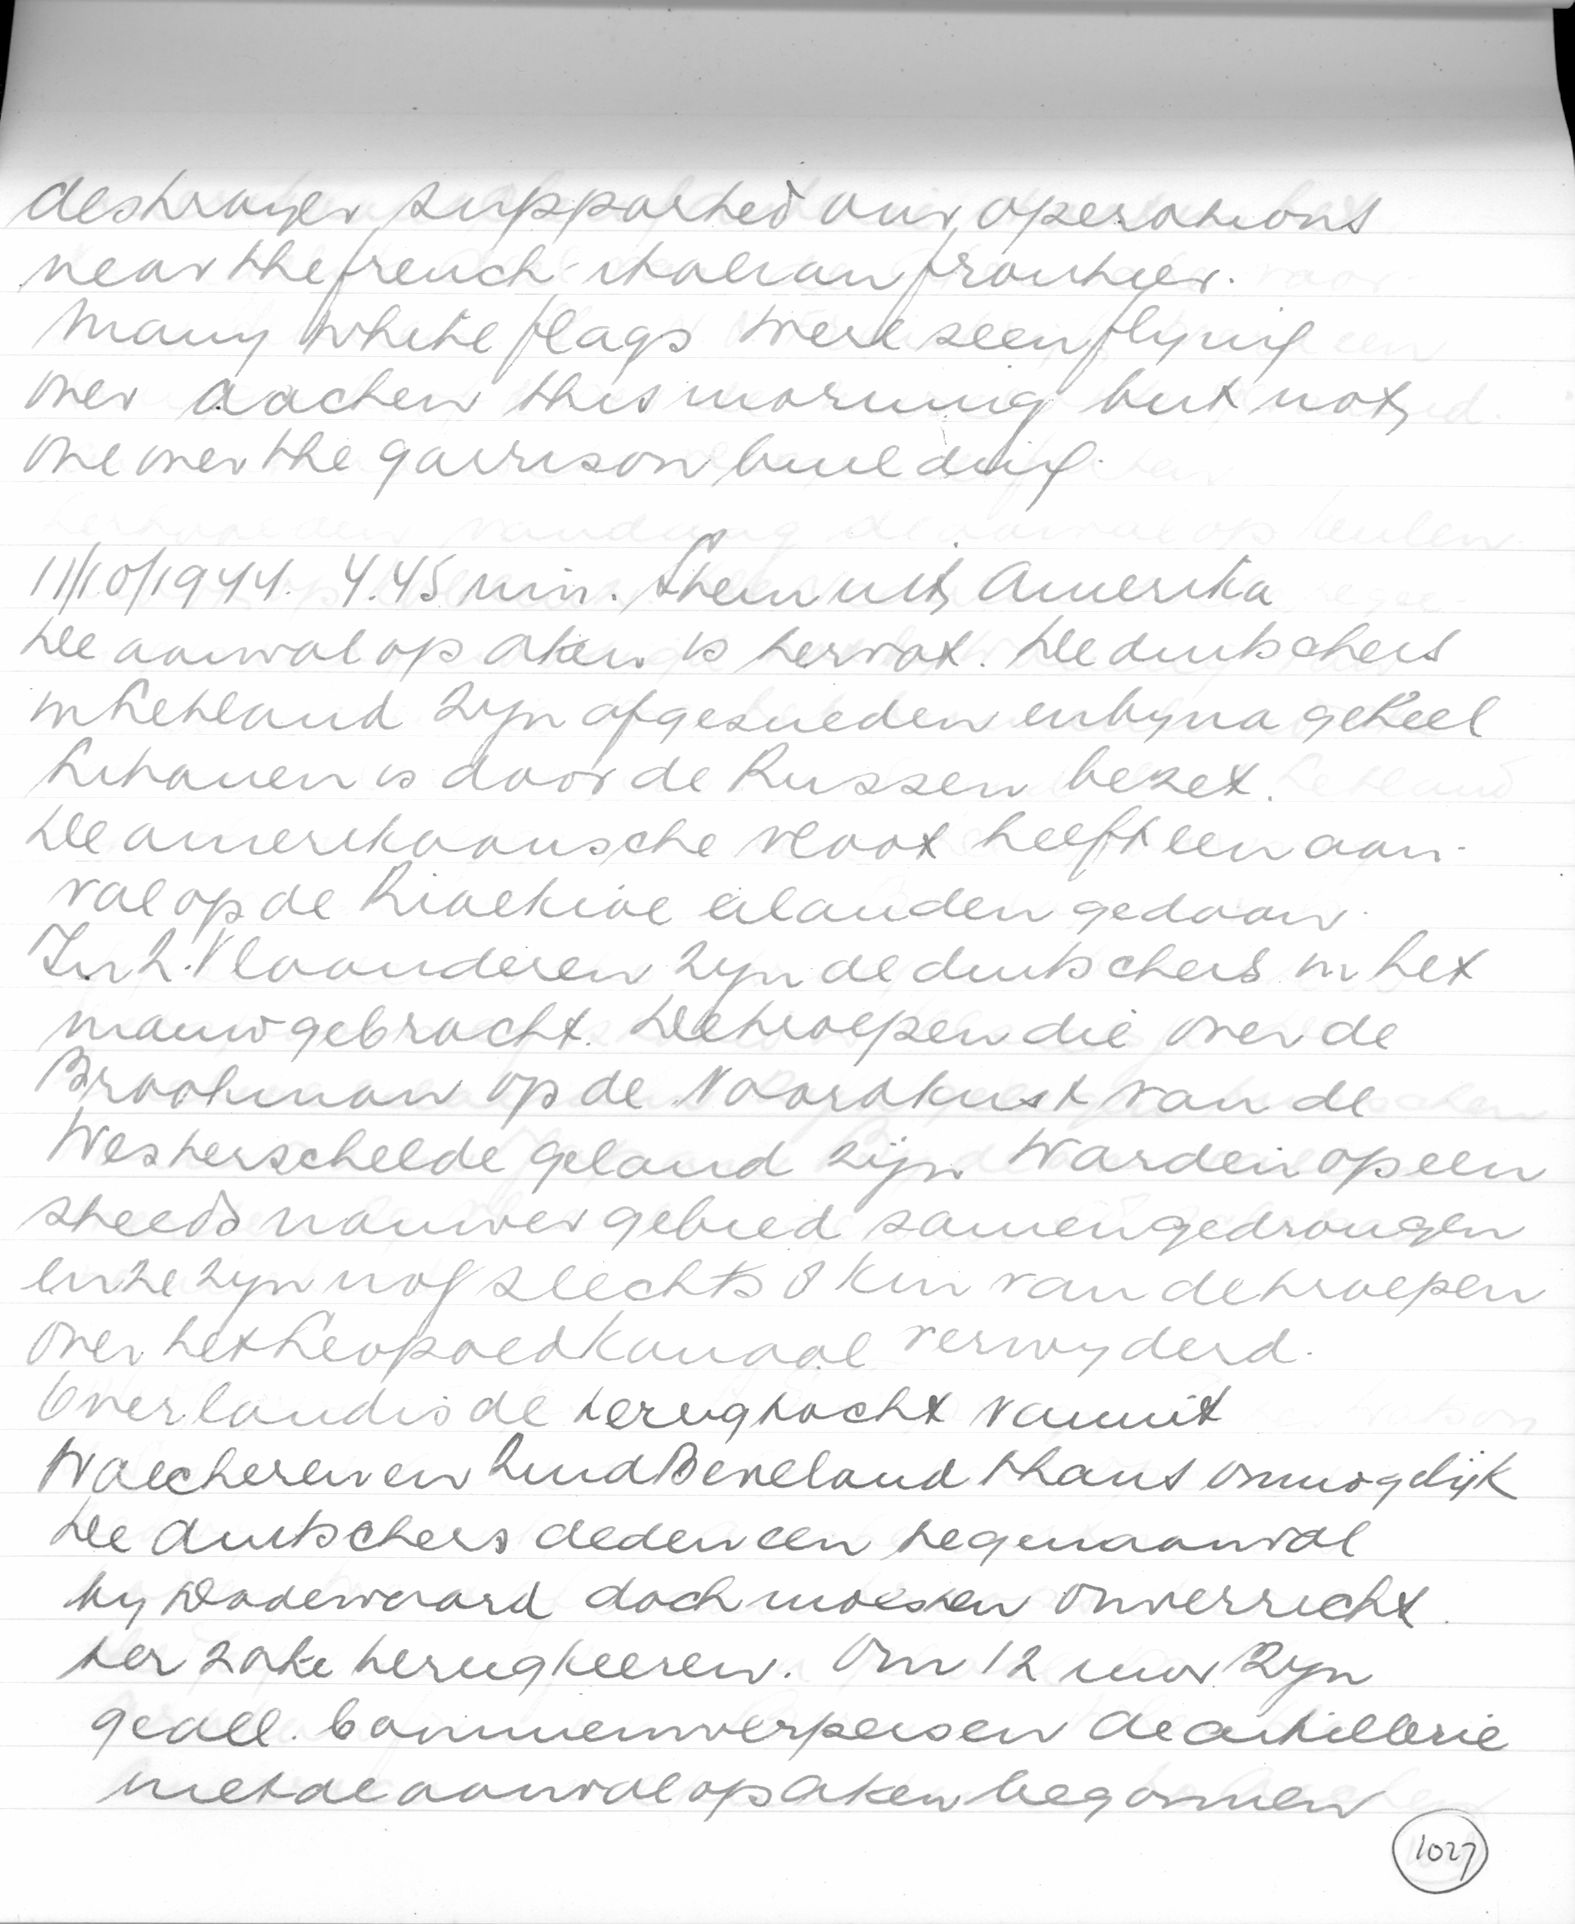 destroyer supported our operations
near the french-italian frontier.
Many white flags were seen flying
over Aachen this morning but not
one over the garrison building.
11/10/1944. 4.45 min. Stem uit Amerika
De aanval op Aken is hervat. De duitschers
in Letland zyn afgesneden en byna geheel
Litauen is door de Russen bezet.
De amerikaansche vloot heeft een aan-
val op de Rioekioe eilanden gedaan.
In Z. Vlaanderen zyn de duitschers in het
nauw gebracht. De troepen die over de
Braakman op de Noordkust van de
Westerschelde geland zijn warden op een
steeds nauwer gebied samengedrongen
en ze zyn nog slechts 8 km van de troepen
over het Leopoldkanaal verwyderd.
Over land is de terugtocht vanuit
Walcheren en Zuid Beveland thans onmogelijk
De duitschers deden een tegenaanval
by Dodewaard doch moesten onverricht
ter zake terugkeeren. Om 12 uur zyn
geall. bommenwerpers en de artillerie
met de aanval op Aken begonnen
1027